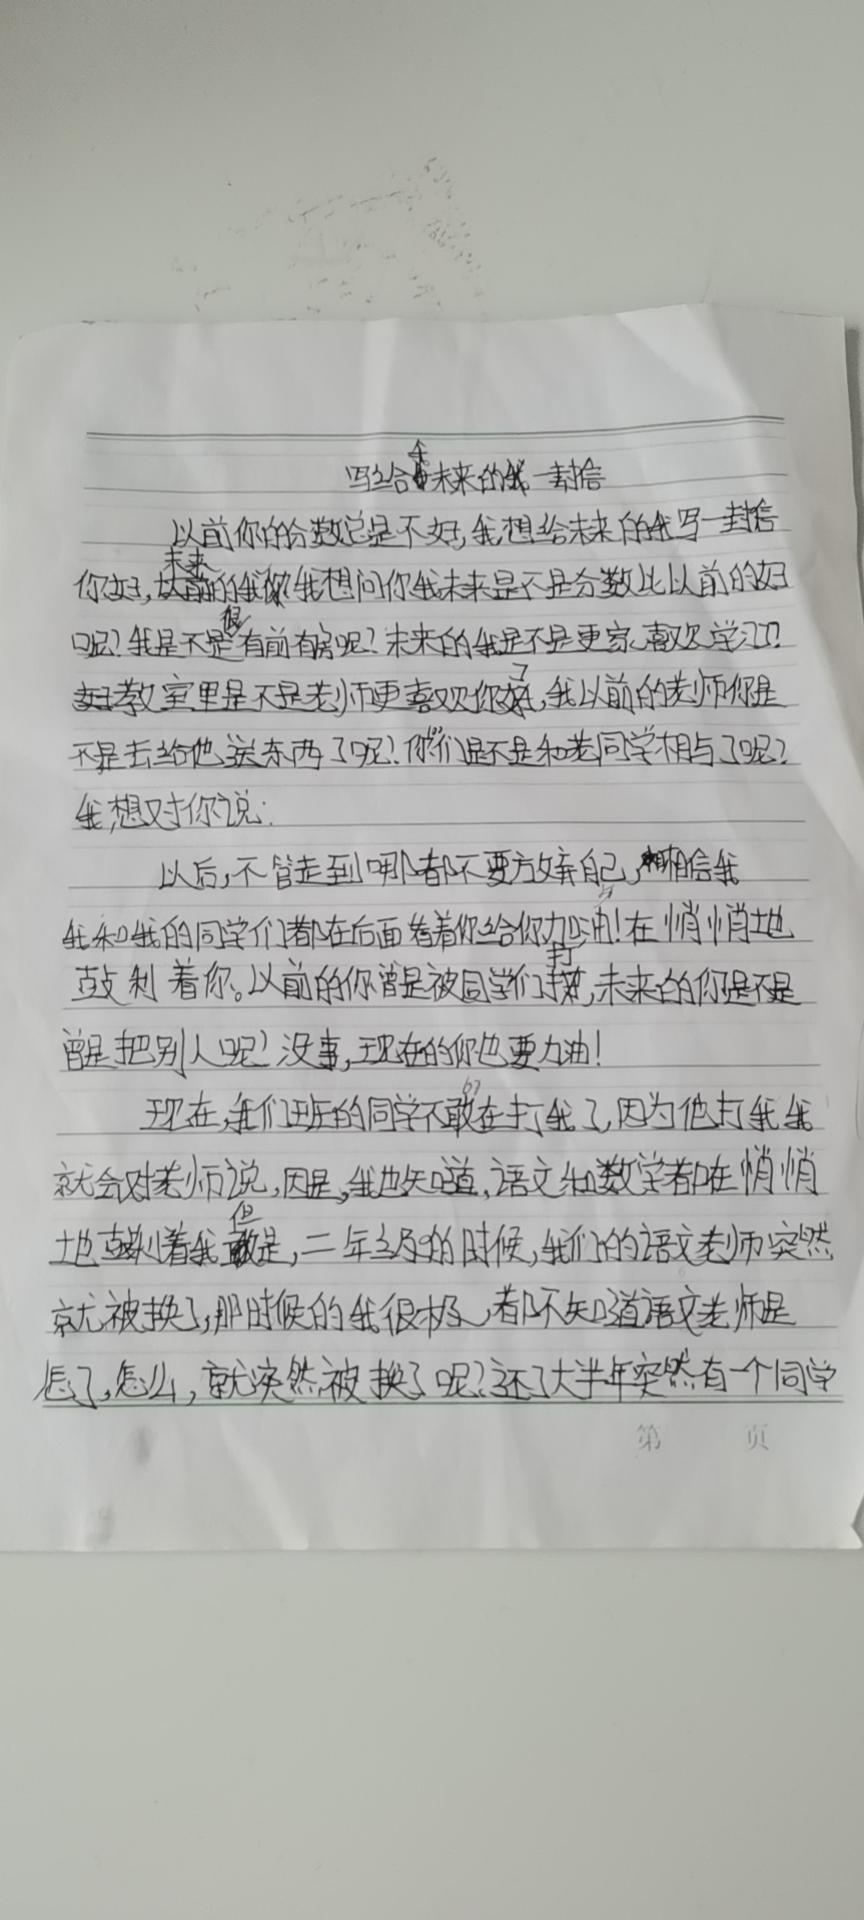 写给未来的我一封信
以前你的分数总是不好,我想给未来的我写一封信
你好,未来的我!我想问你我未来是不是分数比以前的好
呢?我是不是很有前有房呢?未来的我是不是更家喜欢学习?
教室里是不是老师更喜欢你了,我以前的老师你是
不是去给他送东西了呢?你们是不是和老同学相与了呢?
我想对你说:
以后,不管走到哪都不要方弃自己,相信我
我和我的同学们都在后面看着你给你加油!在悄悄地
鼓利着你。以前的你曾是被同学们打,未来的你是不是
曾是把别人呢?没事,现在的你也要力油!
现在,我们班的同学不敢在打我了,因为他打我我
就会对老师说,因是,我也知道,语文和数学都在悄悄
地鼓利着我但是,二年级的时候,我们的语文老师突然
就被换了,那时候的我很极,都不知道语文老师是
怎了,怎么,就突然被换了呢?还了大半年突然有一个同学
第 页